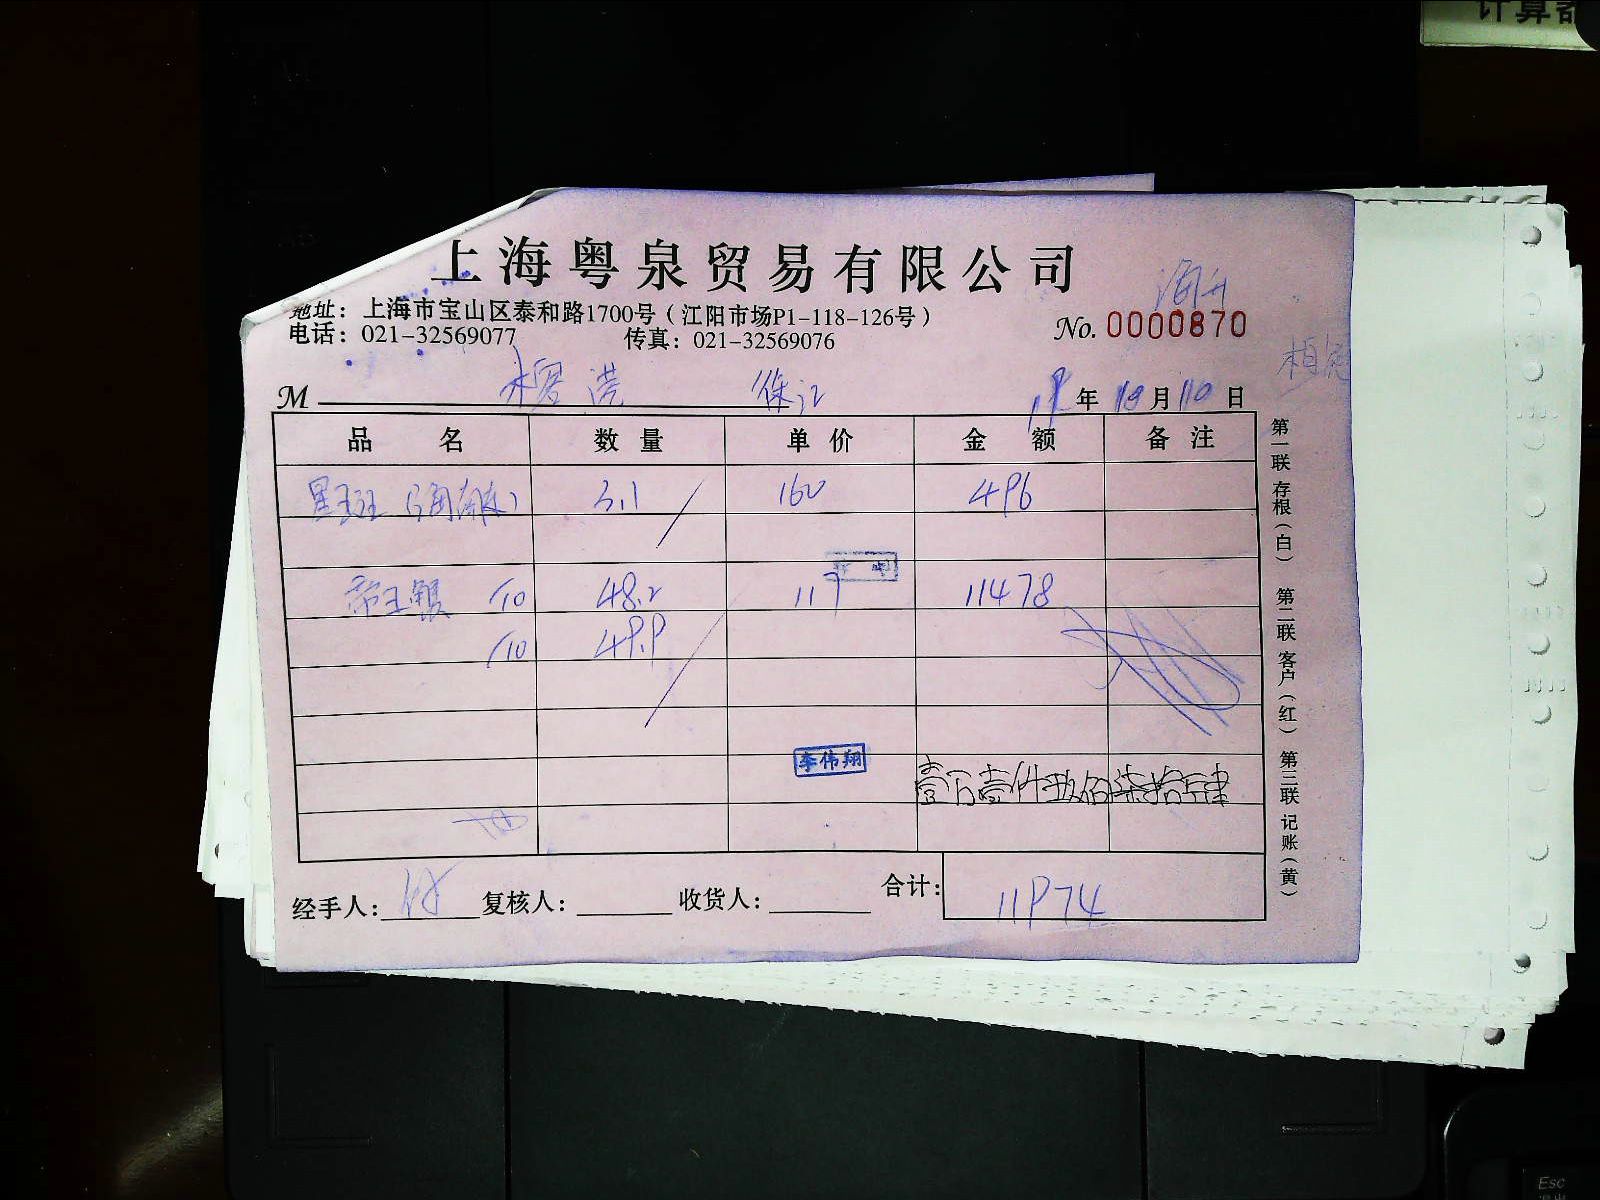 计算器
上海粤泉贸易有限公司
地址：上海市宝山区泰和路1700号（江阳市场P1-118-126号）
电话：021-32569077 传真：021-32569076
No. 0000870
M 年 10 月 10 日
品名 数量 单价 金额 备注
3.1 160 496
帝王 /10 48.2 117 11478
/10 49.9
李伟翔
壹万壹仟玖佰柒拾肆
经手人： 复核人： 收货人： 合计： 11974
第一联 存根（白） 第二联 客户（红） 第三联 记账（黄）
Esc